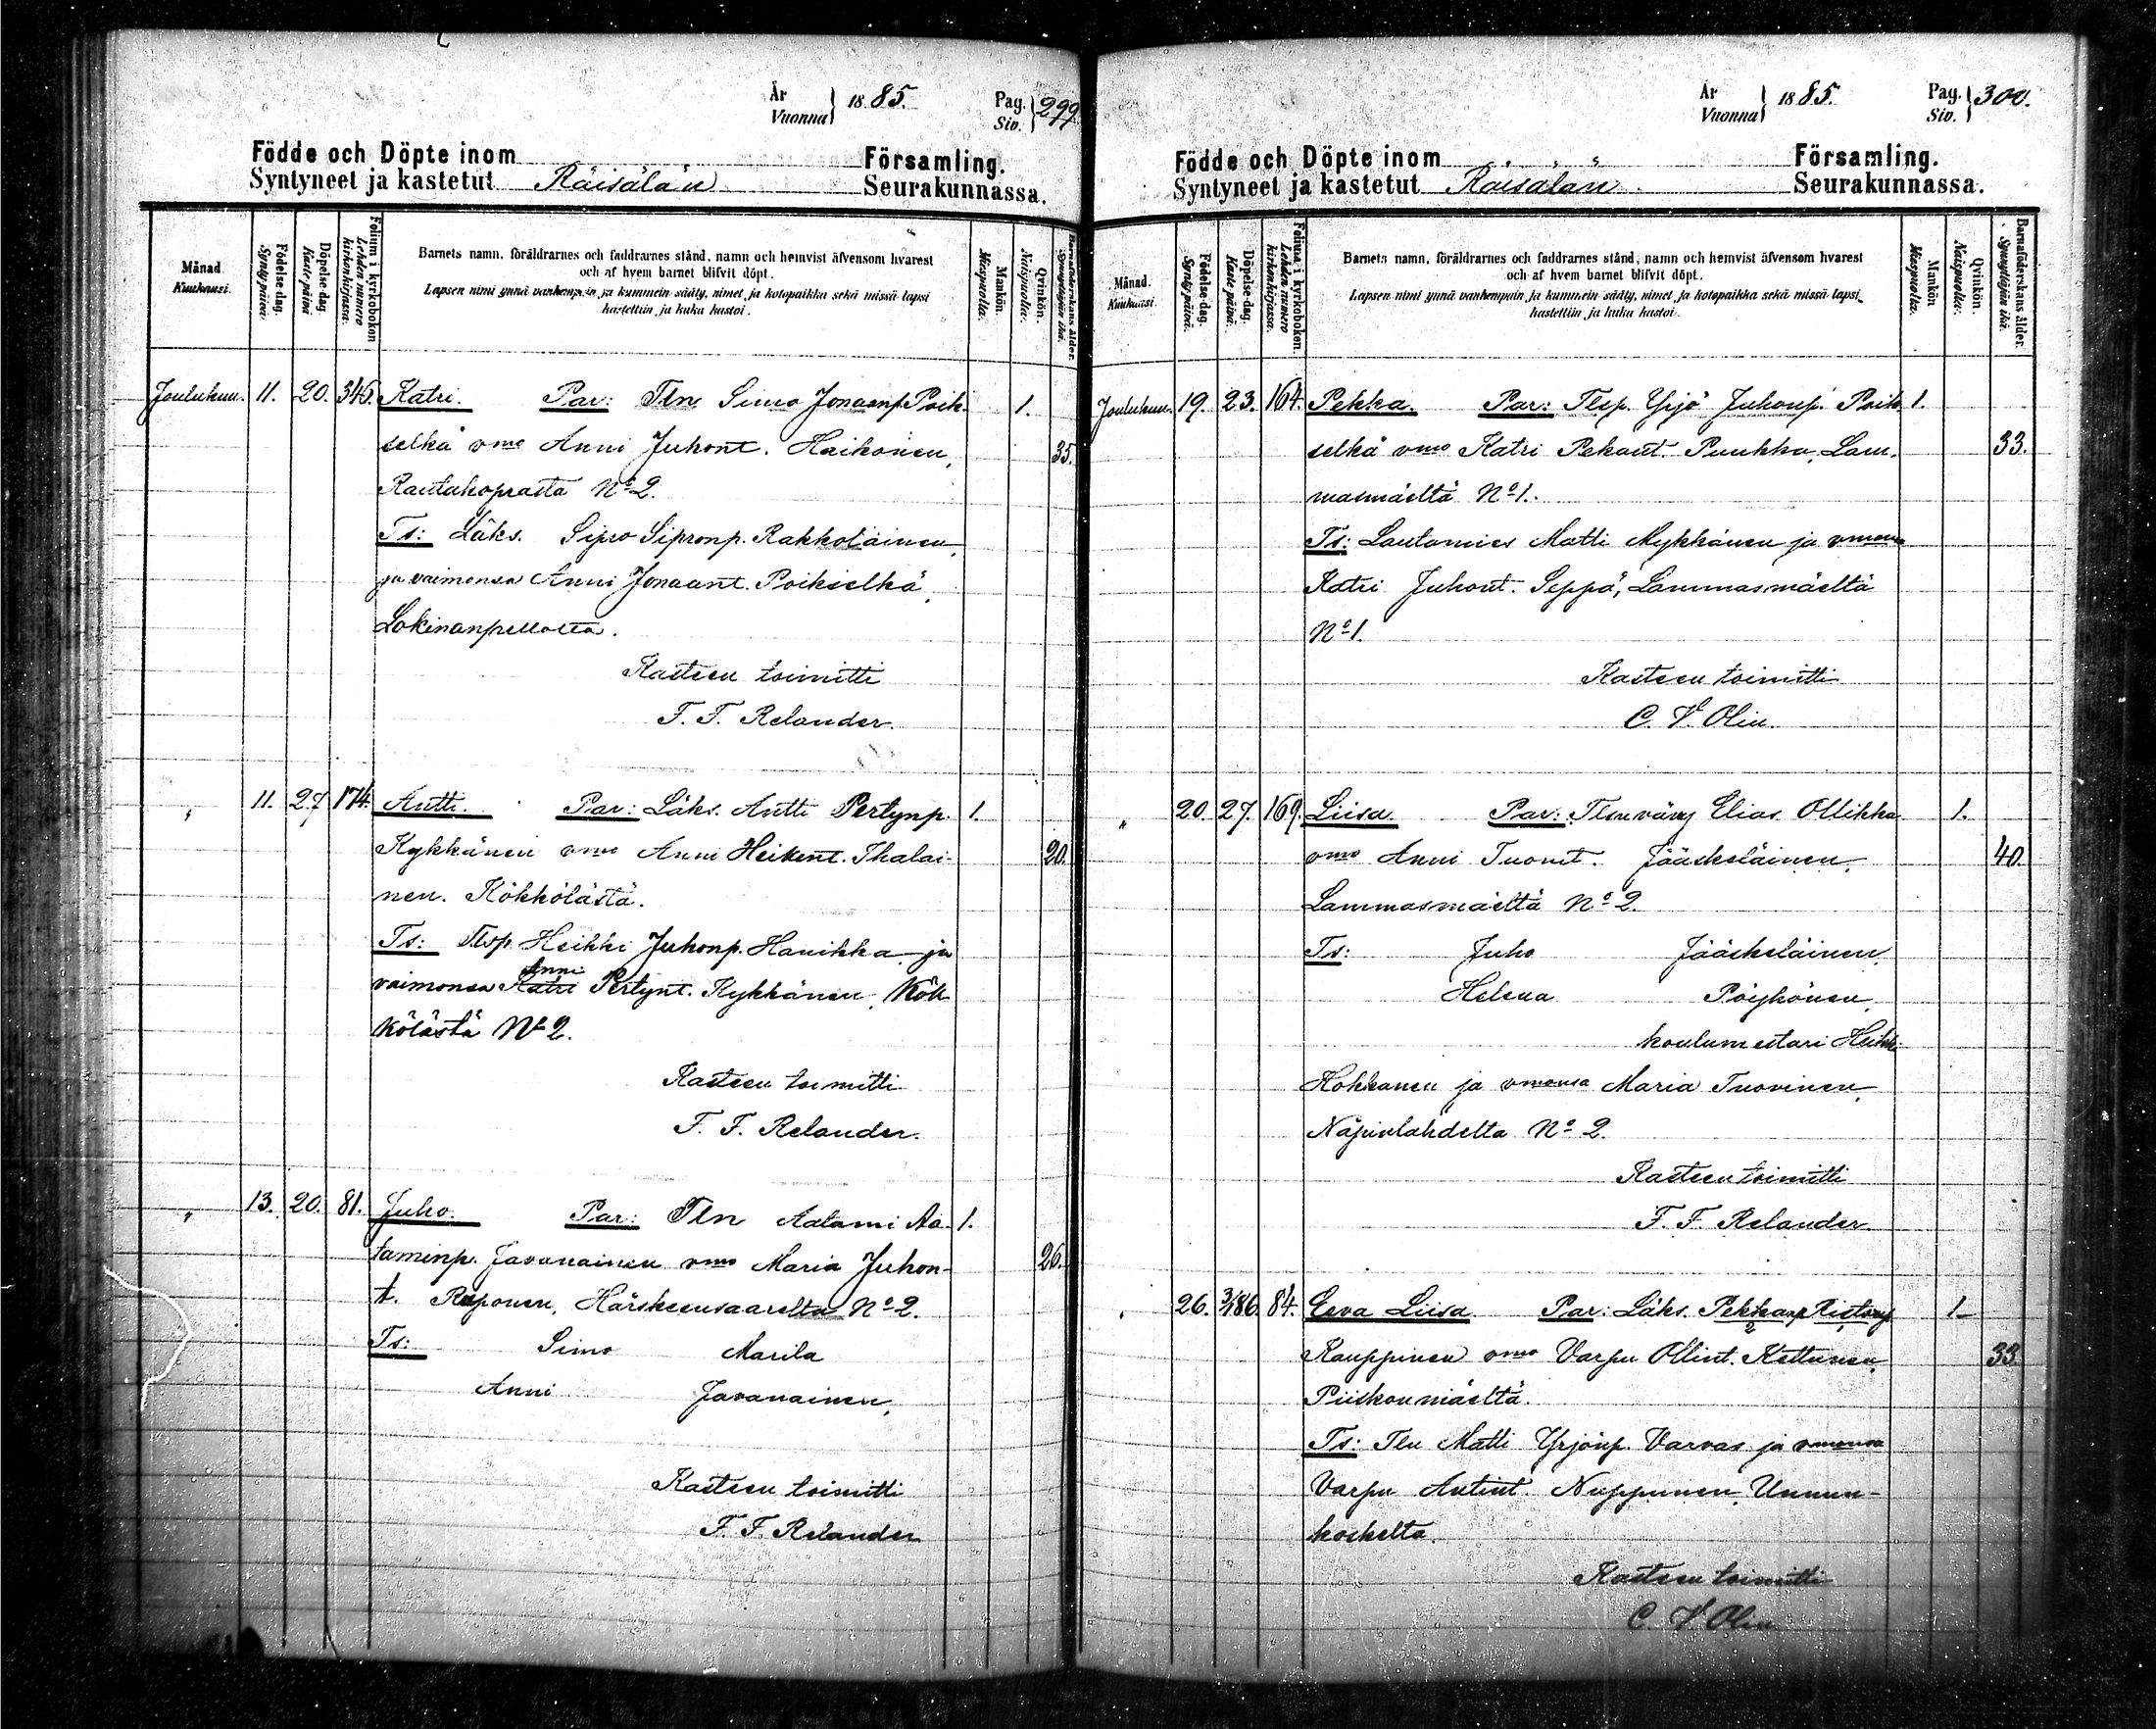 År
Vuonna } 1885.
Pag.
Siv. } 299
Födde och Döpte inom Församling.
Syntyneet ja kastetut Räisälän Seurakunnassa.
Månad.
Kuukausi.
Födelse-dag.
Syntypäivä.
Döpelse-dag.
Kaste-päivä.
Folium i kyrkoboken
Lehden numero
kirkonkirjassa.
Barnets namn, föräldrarnes och faddrarnes stånd, namn och hemvist äfvensom hvarest
och af hvem barnet blifvit döpt.
Lapsen nimi ynnä vanhempain ja kummein sääty, nimet ja kotopaikka sekä missä lapsi
kastettiin ja kuka kastoi.
Mankön.
Miespuolia.
Qvinkön.
Naispuolia.
Barnaföderskans ålder.
Synnyttäjän ikä.
Joulukuu. 11. 20. 345. Katri. Par: Tln Simo Jonaanp. Poik- 1.
selkä vmo Anni Juhont. Haikonen, 35.
Rautakoprasta No 2.
Ts: Läks. Sipro Sipronp. Rakkolainen,
ja vaimonsa Anni Jonaant. Poikselkä,
Lokinanpellolta.
Kasteen toimitti
F. F. Relander.
" 11. 27. 174. Antti. Par: Läks. Antti Pertynp. 1.
Kykkänen vmo Anni Heikint. Ihalai- 20.
nen. Kökkölästä.
Ts: Tlsp. Heikki Juhonp. Hanikka ja
Anni
vaimonsa Katri Pertynt. Kykkänen, Kök
kölästä No 2.
Kasteen toimitti
F. F. Relander.
" 13. 20. 81. Juho. Par: Tln Aatami Aa- 1.
taminp. Javanainen vmo Maria Juhon- 26.
t. Reponen, Härskeensaarelta No 2.
Ts: Simo Marila
Anni Javanainen,
Kasteen toimitti
F. F. Relander
År
Vuonna } 1885.
Pag.
Siv. } 300.
Födde och Döpte inom Församling.
Syntyneet ja kastetut Räisälän Seurakunnassa.
Månad.
Kuukausi.
Födelse-dag.
Syntypäivä.
Döpelse-dag.
Kaste-päivä.
Folium i kyrkoboken.
Lehden numero
kirkonkirjassa.
Barnets namn, föräldrarnes och faddrarnes stånd, namn och hemvist äfvensom hvarest
och af hvem barnet blifvit döpt.
Lapsen nimi ynnä vanhempain ja kummein sääty, nimet ja kotopaikka sekä missä lapsi
kastettiin ja kuka kastoi.
Mankön.
Miespuolia.
Qvinkön.
Naispuolia.
Barnaföderskans ålder.
Synnyttäjän ikä.
Joulukuu. 19. 23. 164. Pekka. Par: Tlsp. Yrjö Juhonp. Poik 1.
selkä vmo Katri Pekant. Puukka, Lam- 33.
masmäeltä No 1.
Ts: Lautamies Matti Mykkänen ja vmonsa
Katri Juhont. Seppä, Lammasmäeltä
No 1.
Kasteen toimitti
C. V. Olin.
" 20. 27. 169. Liisa. Par: Tlsnvävy Elias Ollikka 1.
vmo Anni Tuomt. Jääskeläinen, 40.
Lammasmäeltä No 2.
Ts: Juho Jääskeläinen,
Helena Pöyhönen,
koulumestari Heikki
Hokkanen ja vmonsa Maria Tuovinen,
Näpinlahdelta No 2.
Kasteen toimitti
F. F. Relander
" 26. 3/1 86. 84. Eeva Liisa Par: Läks. Pekka Ristonp 1.
Kauppinen vmo Varpu Ollint. Kettunen, 33.
Piiskonmäeltä.
Ts: Tln Matti Yrjönp. Varvas ja vmonsa
Varpu Antint. Nuppunen, Unnun-
koskelta.
Kasteen toimitti
C. V. Olin